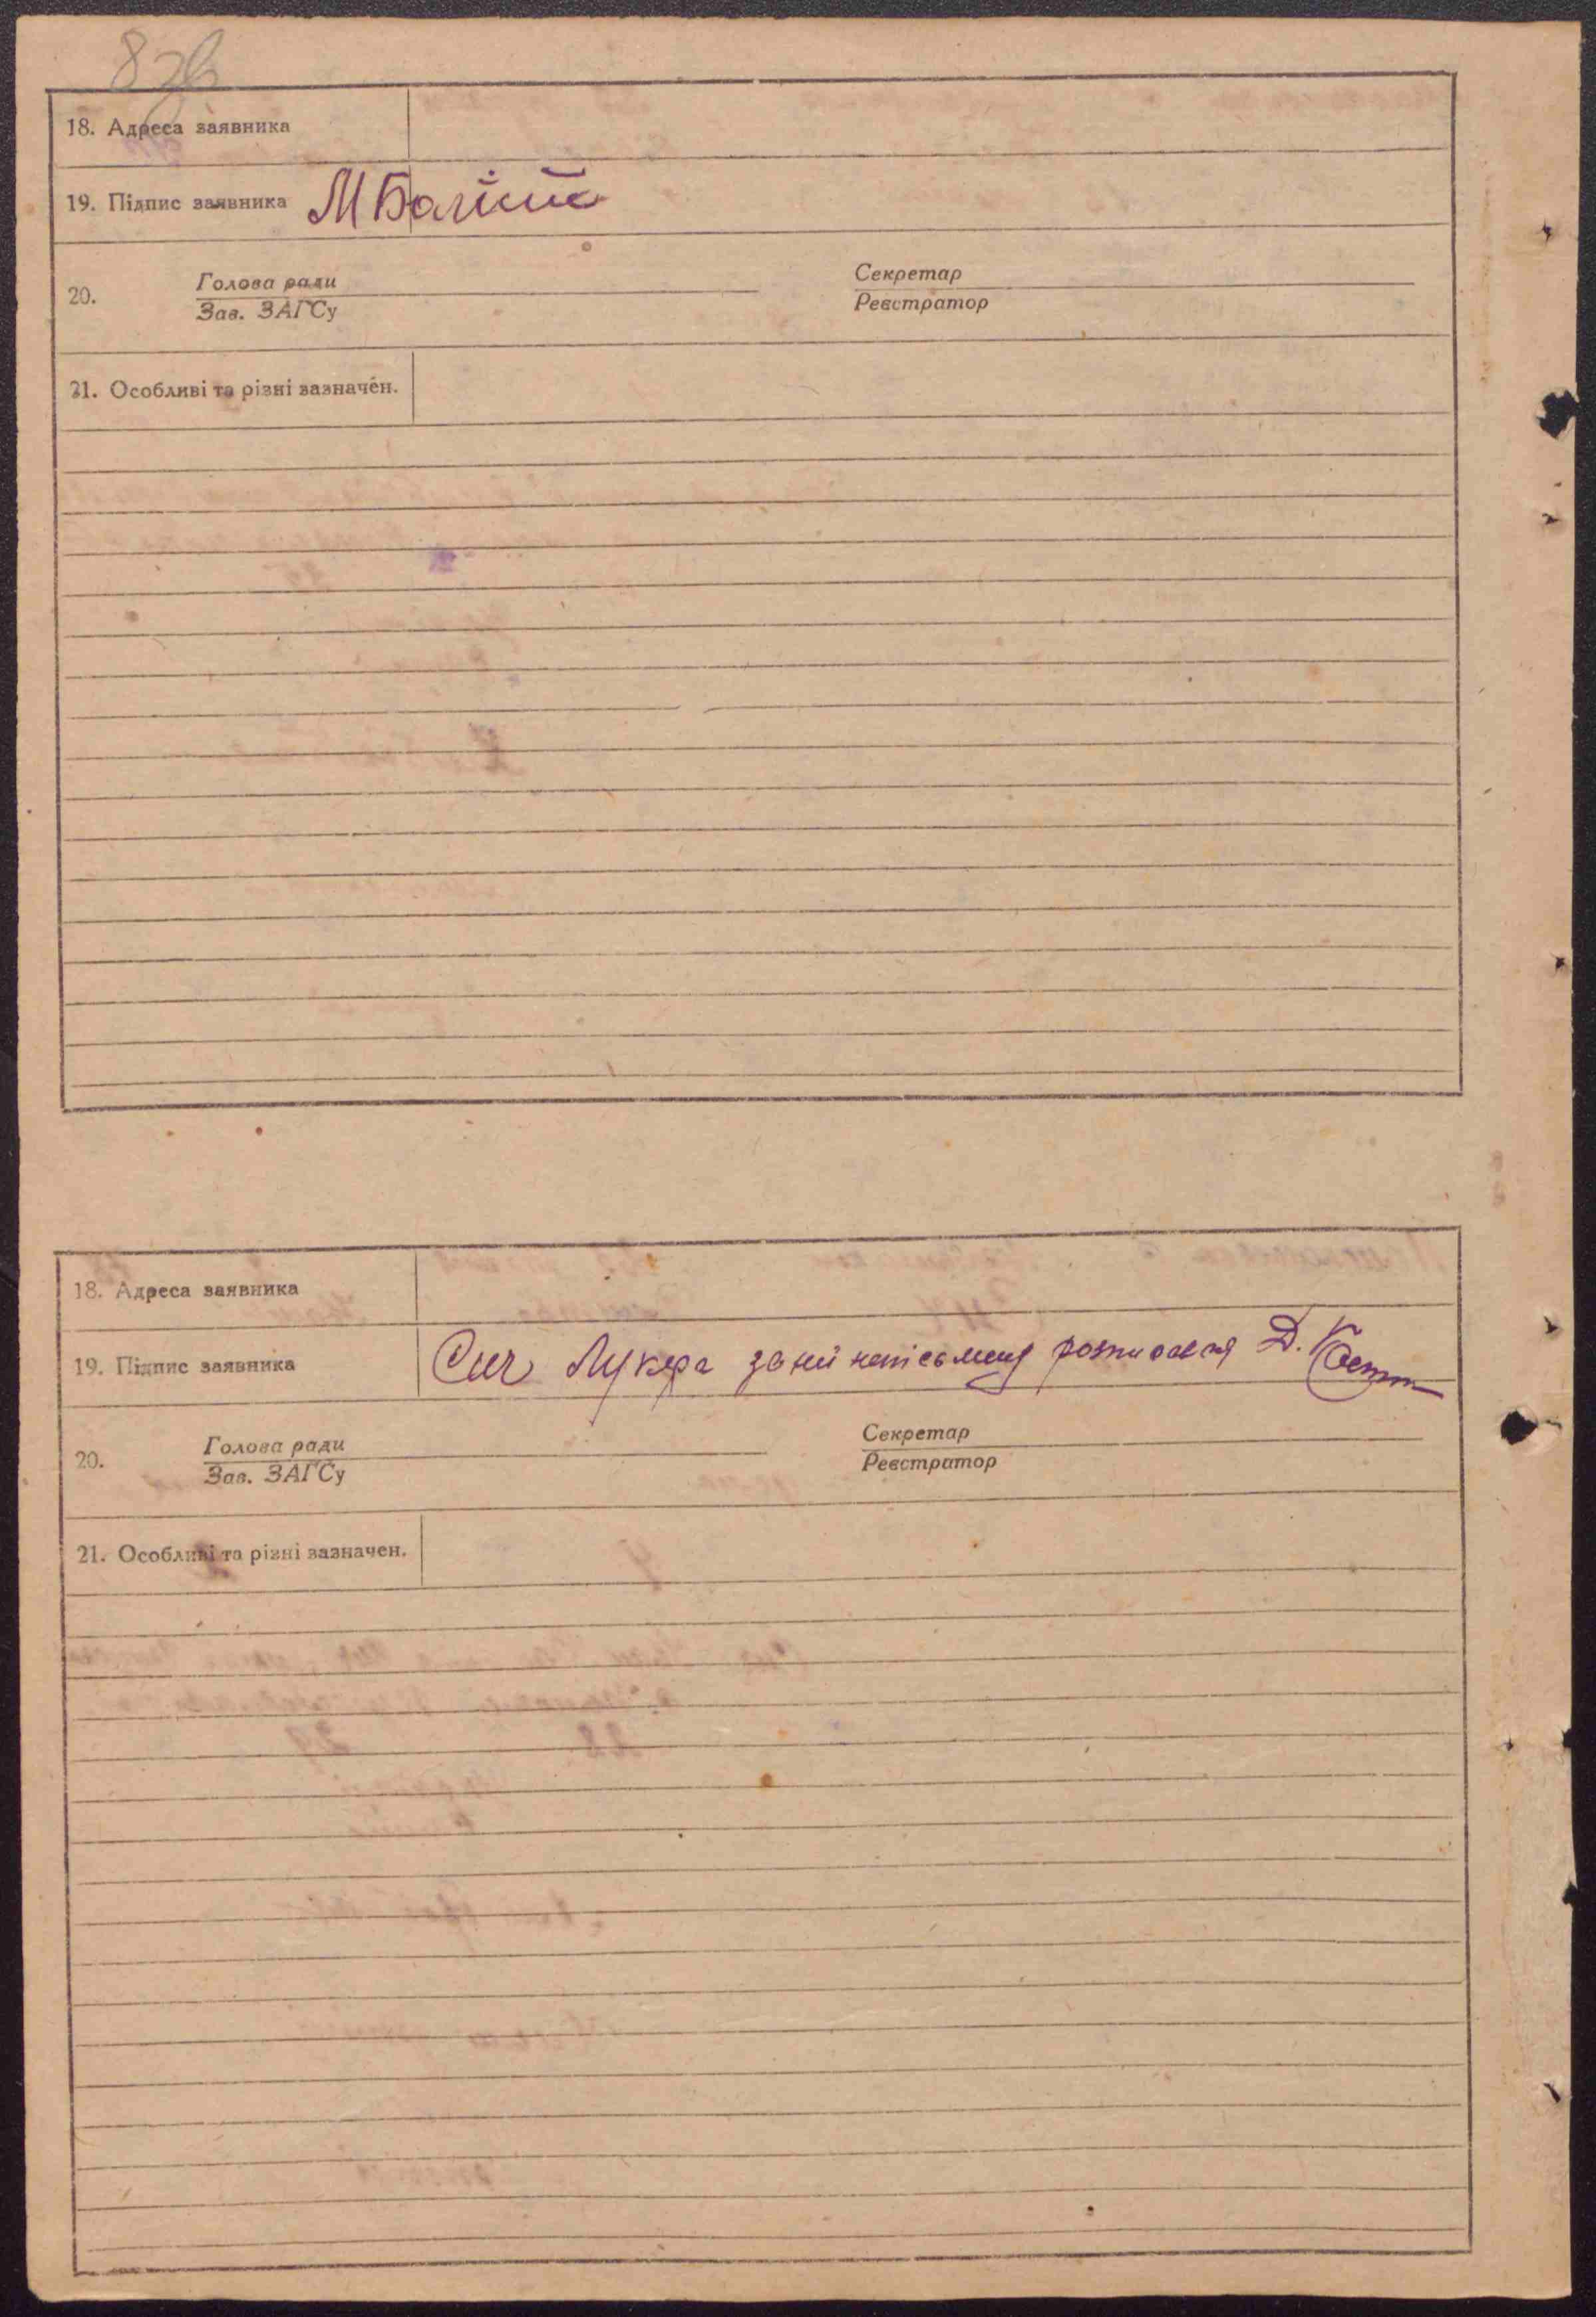 18. Адреса заявника
19. Підпис заявника
20. Голова ради Секретар
Зав. ЗАГСу Реєстратор
21. Особливі та різні зазначен.
18. Адреса заявника
19. Підпис заявника Сич Лукера за неї неписьмену розписався Д.
20. Голова ради Секретар
Зав. ЗАГСу Реєстратор
21. Особливі та різні зазначен.